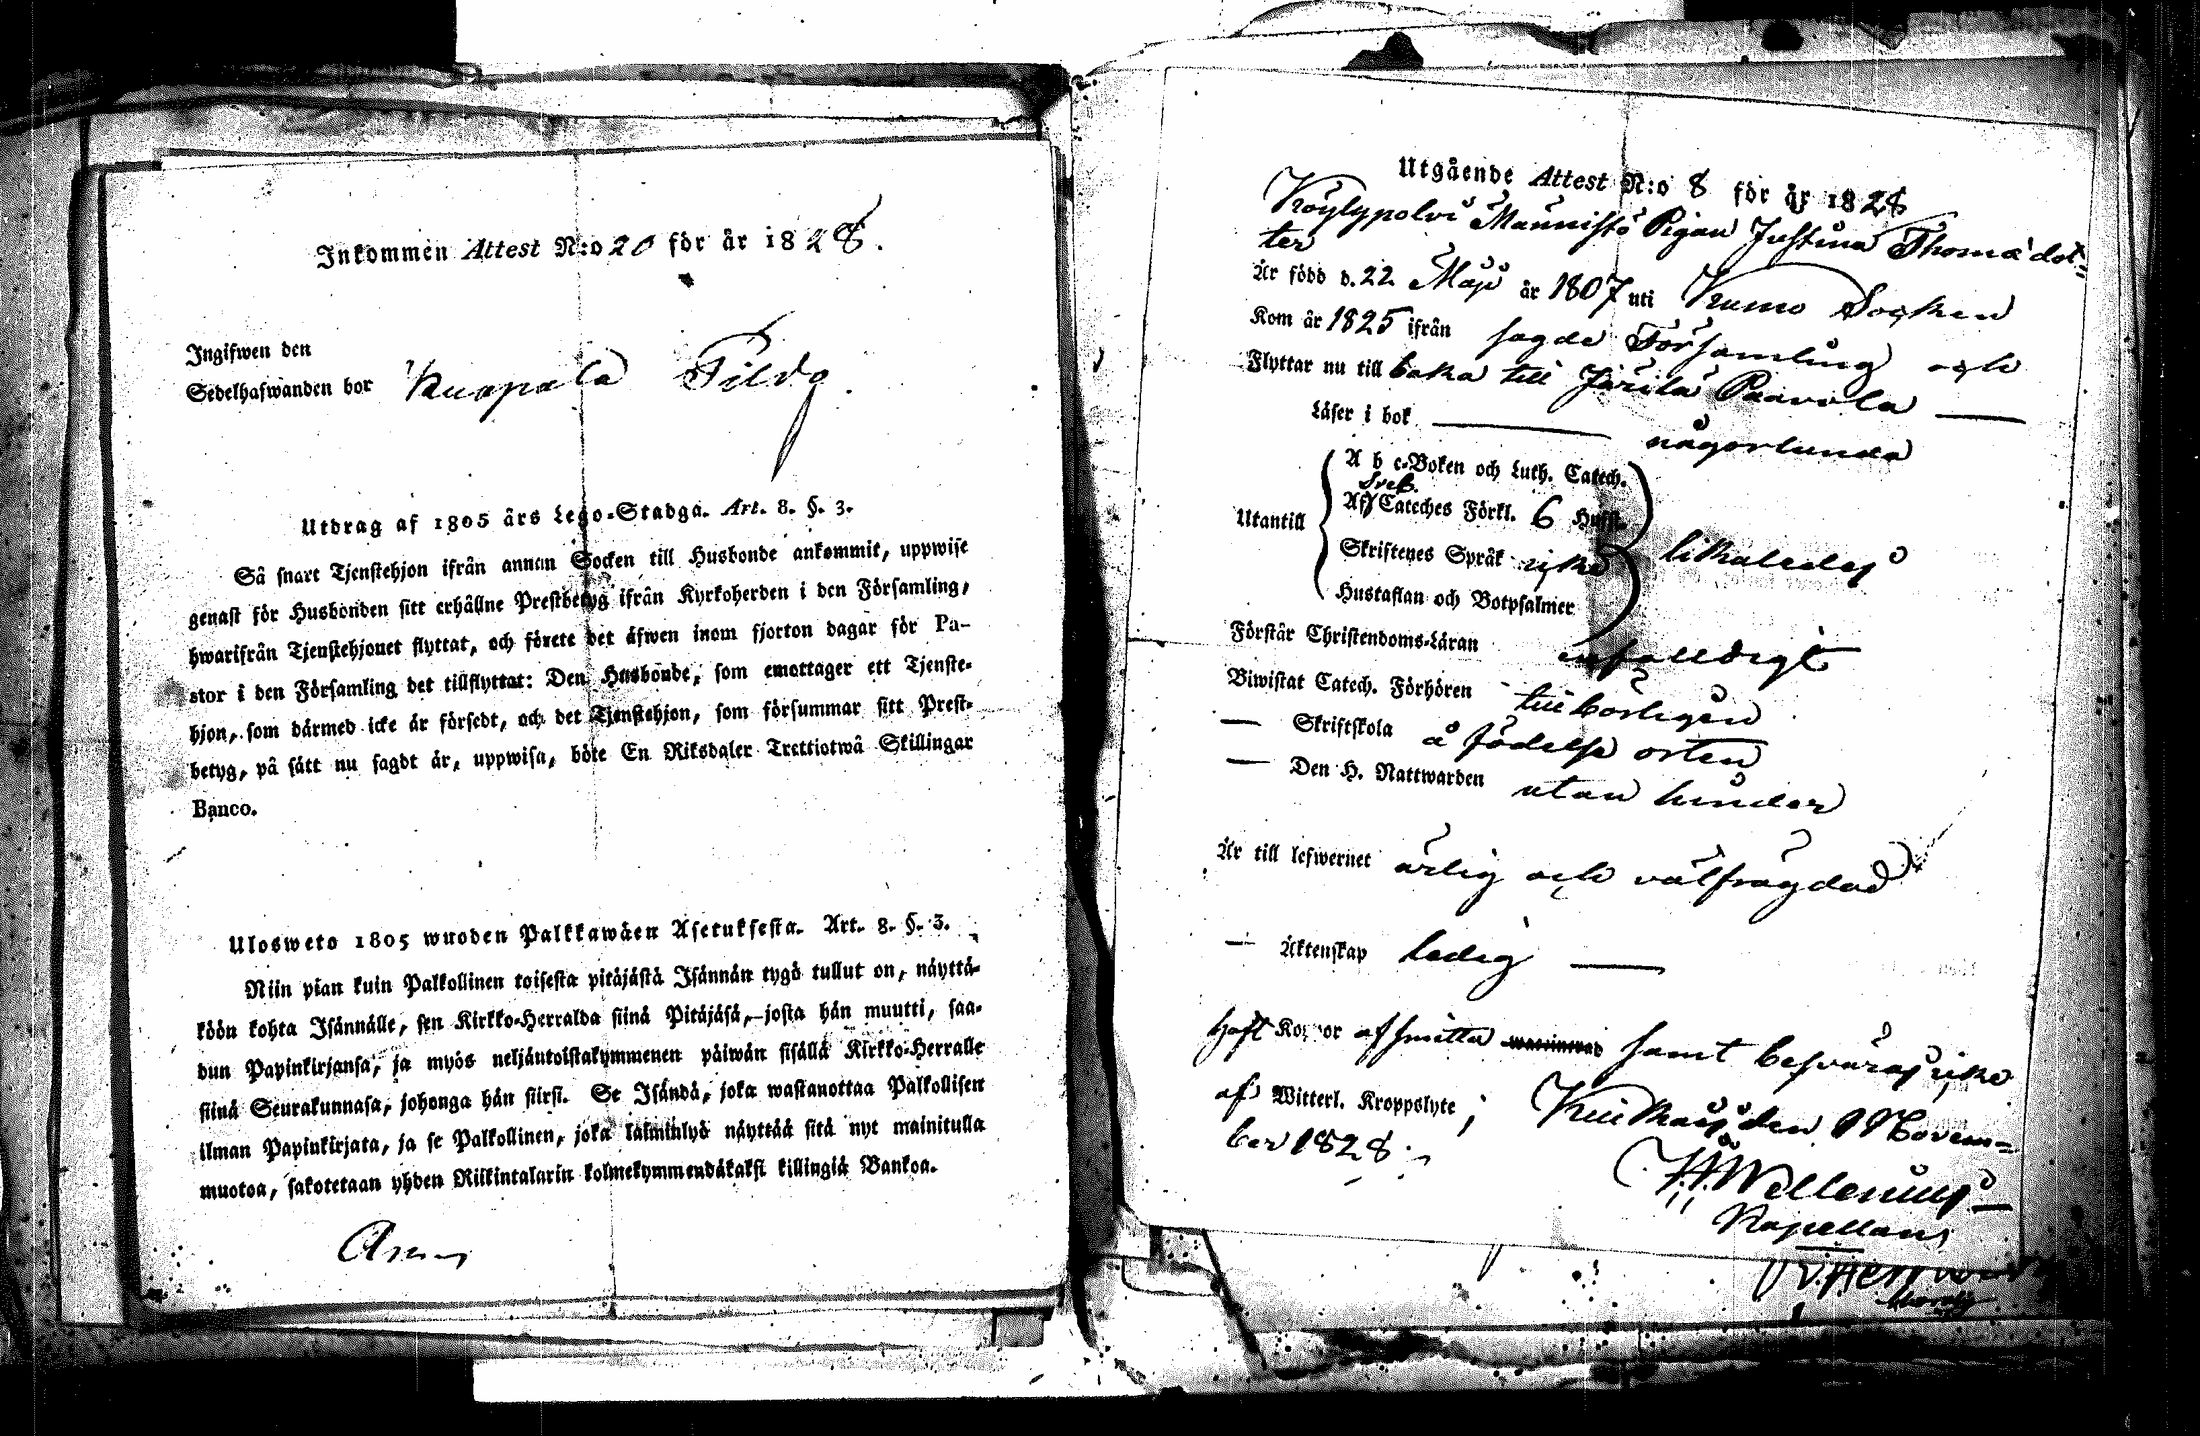 Inkommen Attest N:o 20 för år 1828.
Ingifwen den
Sedelhafwanden bor
Utdrag af 1805 års Lego-Stadga. Art. 8. §. 3.
Så snart Tjenstehjon ifrån annan Socken till Husbonde ankommit, uppwise
genast för Husbonden sitt erhållne Prestbetyg ifrån Kyrkoherden i den Församling,
hwarifrån Tjenstehjonet flyttat, och förete det äfwen inom fjorton dagar för Pa-
stor i den Församling det tillflyttat: Den Husbonde, som emottager ett Tjenste-
hjon, som därmed icke är försedt, och det Tjenstehjon, som försummar sitt Prest-
betyg, på sätt nu sagdt är, uppwisa, böte En Riksdaler Trettiotwå Skillingar
Banco.
Ulosweto 1805 wuoden Palkkawäen Asetuksesta. Art. 8. §. 3.
Niin pian kuin Palkollinen toisesta pitäjästä Isännän tygö tullut on, näyttä-
köön kohta Isännälle, sen Kirkko-Herralda siinä Pitäjäsä, josta hän muutti, saa-
dun Papinkirjansa, ja myös neljäntoistakymmenen päiwän sisällä Kirkko-Herralle
siinä Seurakunnasa, johonga hän siirsi. Se Isändä, joka wastanottaa Palkollisen
ilman Papinkirjata, ja se Palkollinen, joka laiminlyö näyttää sitä nyt mainitulla
muotoa, sakotetaan yhden Riikintalarin kolmekymmendäkaksi killingiä Bankoa.
Utgående Attest N:o 8 för år 1828
Köylypolvi Männistö Pigan Justina Thomædot=
ter
Är född d. 22 Maji år 1807 uti Kumo Socken
Kom år 1825 ifrån sagde Församling och
Flyttar nu till baka till Järilä Paavola
Läser i bok någorlunda
A b c-Boken och Luth. Catech.
Sveb.
Af Cateches Förkl. 6 Hufst.
Utantill
Skriftenes Språk icke likaledes
Hustaflan och Botpsalmer
Förstår Christendoms-Läran enfalldigt
Biwistat Catech. Förhören tillbörligen
— Skriftskola å födelse orten
— Den H. Nattwarden utan hinder
Är till lefwernet ärlig och välfrägdad
— Äktenskap ledig
haft Koppor af smitta samt besväras icke
af Witterl. Kroppslyte; den 9 Novem=
ber 1828.
Kapellan